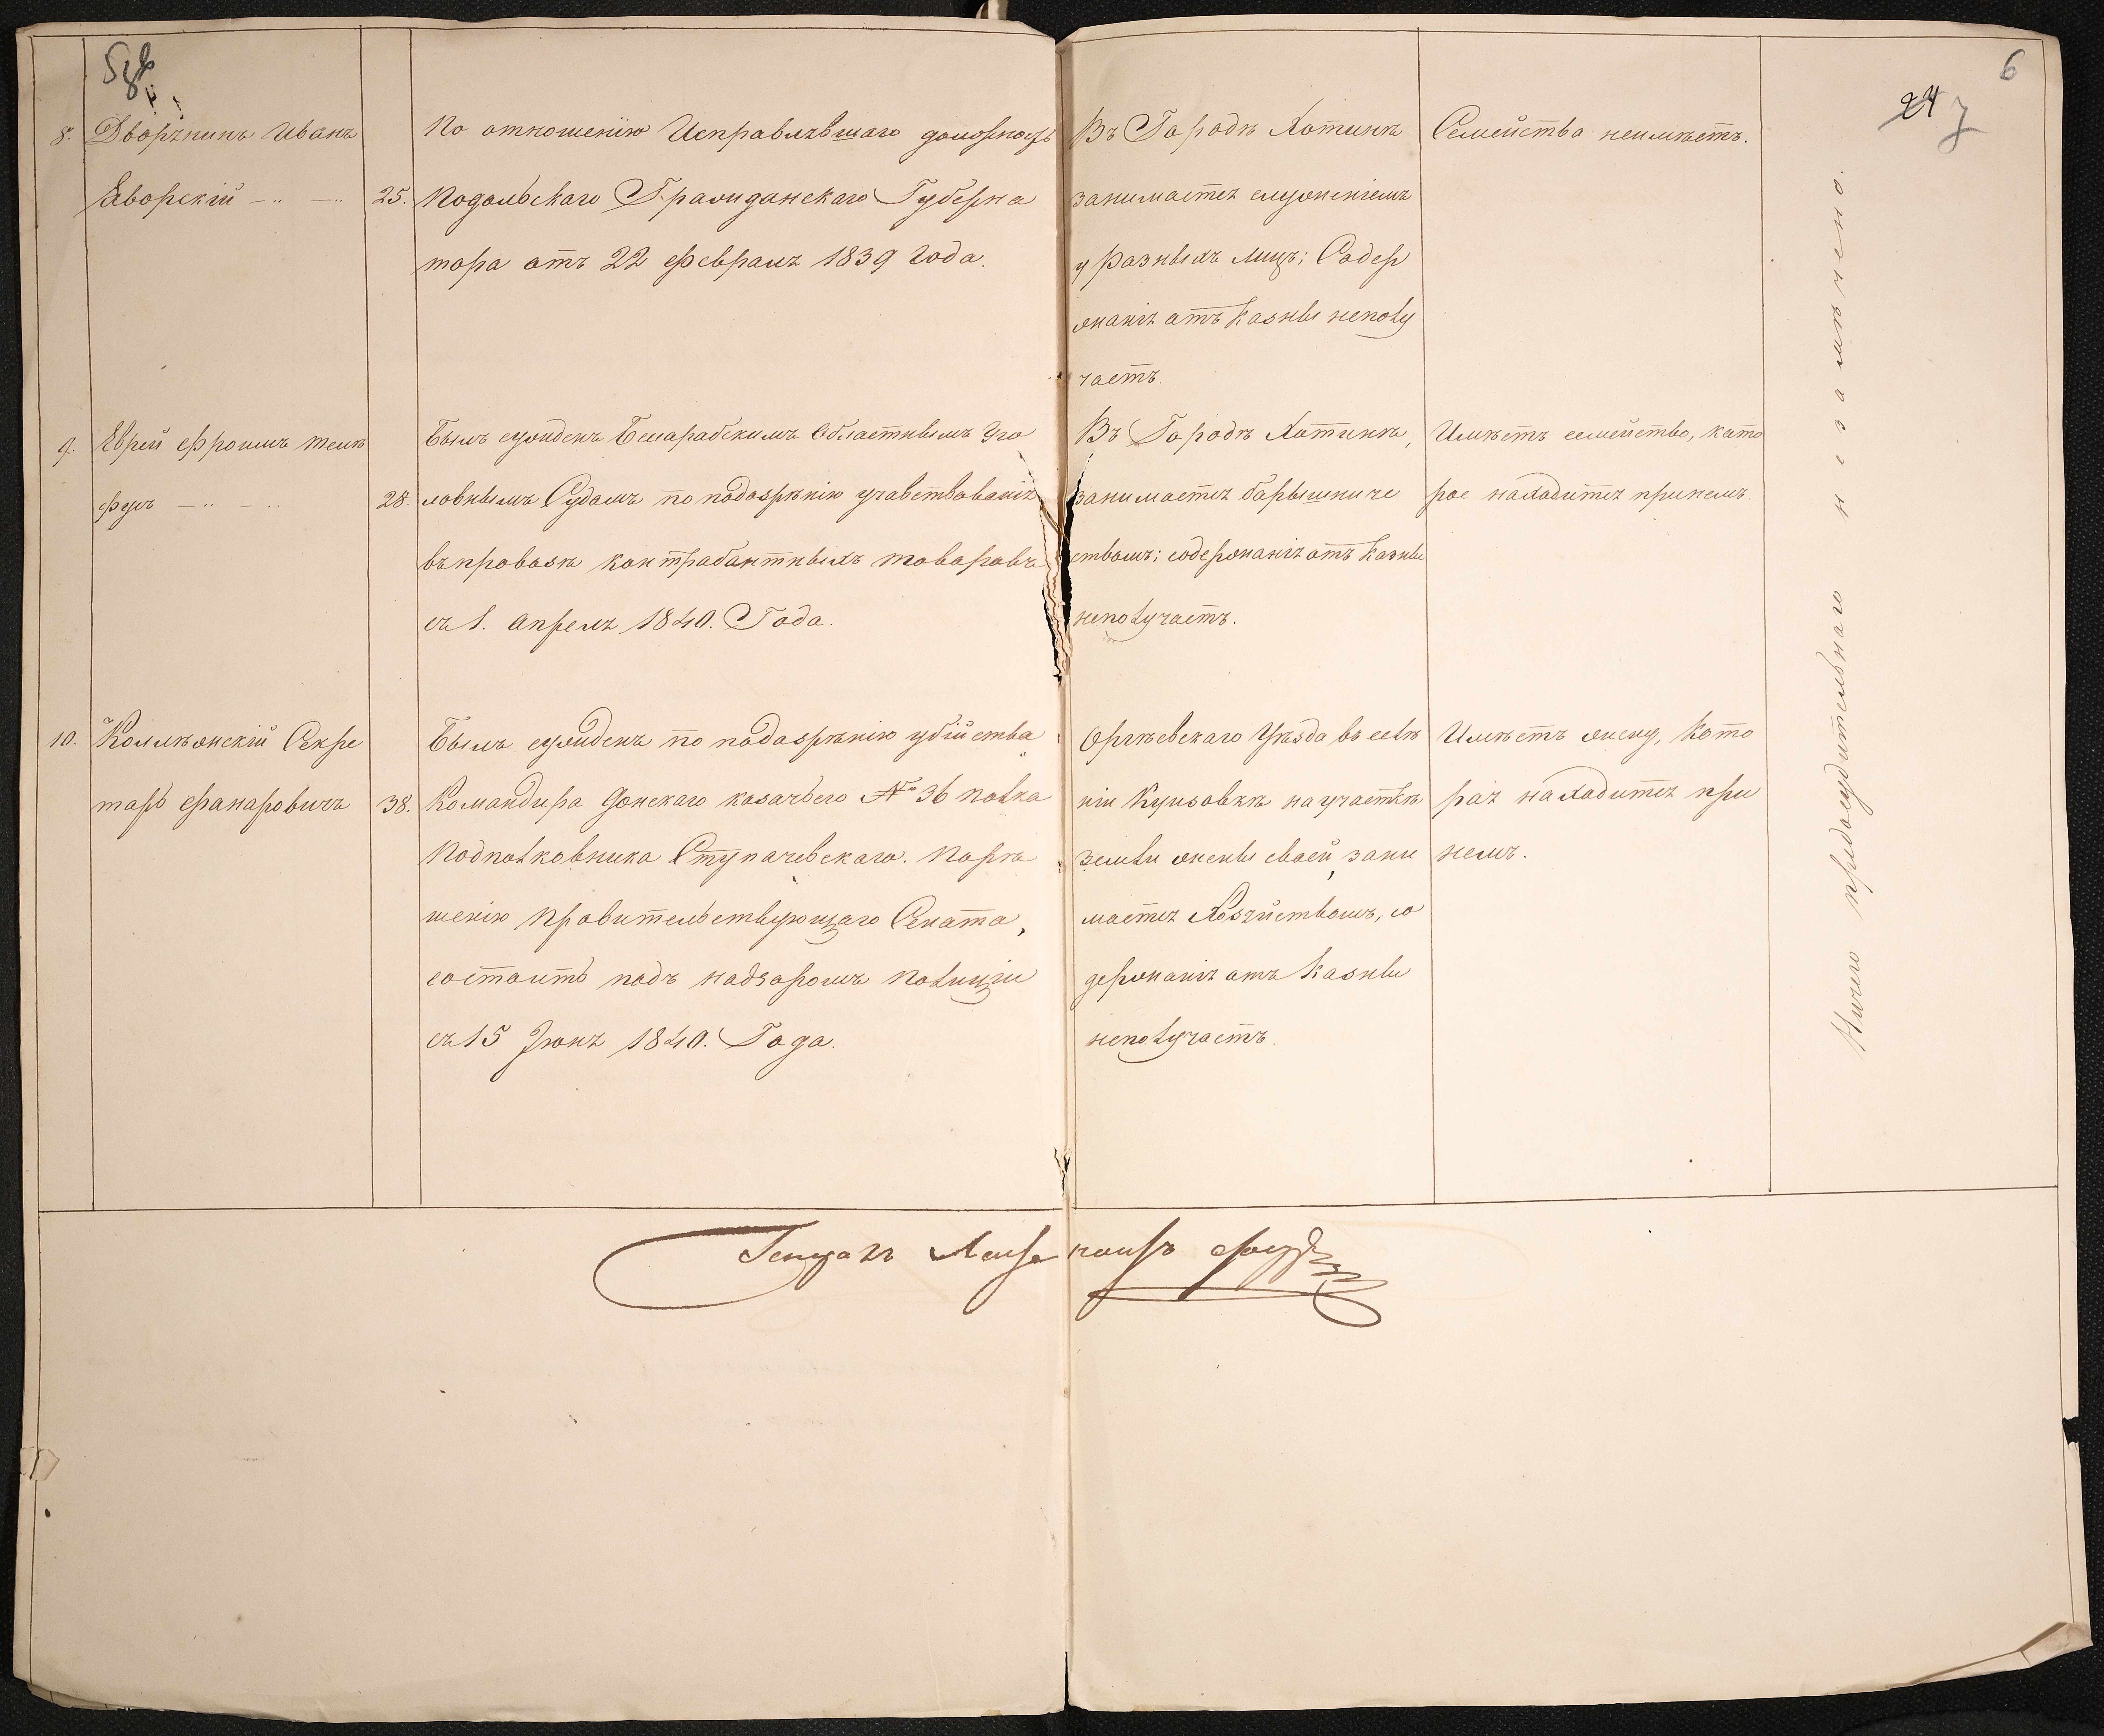 6
24 7
8. Дворянинъ Иванъ
Яворскій — „ — „ 25.
По отношенію Исправлявшаго должность
Подольскаго Гражданскаго Губерна
тора отъ 22 февраля 1839 Года.
Въ Городѣ Хотинѣ
занимается служеніемъ
у разныхъ лицъ; Содер
жанія отъ Казны неполу
чаетъ.
Семейства неимѣетъ.
9. Еврей Фроимъ
28.
Былъ сужденъ Бесарабскимъ Областнымъ Уго
ловнымъ Судомъ по подозрѣнію участвованія
въ провозѣ контрабантныхъ товаровъ
съ 1. Апреля 1840. Года.
Въ Городѣ Хотинѣ,
занимается барышниче
ствомъ; содержанія отъ Казны
неполучаетъ.
Имѣетъ семейство, кото
рое находится принемъ.
10. Колѣжскій Секре
тарь Фанаровичъ 38.
Былъ сужденъ по подозрѣнію убійства
Командира Донскаго казачьего № 36 полка
Подполковника Ступачевскаго. Порѣ
шенію Правительствующаго Сената,
состоитъ подъ надзоромъ Полиціи
съ 15 Іюня 1840. Года.
Оргѣевскаго Уѣзда въ селѣ
ніи Кунзовкѣ на участкѣ
земли жены своей, зани
мается Хозяйствомъ, со
держанія отъ Казны
неполучаетъ.
Имѣетъ жену, Кото
рая находится при
немъ.
Ничего предосудительнаго незамѣчено.